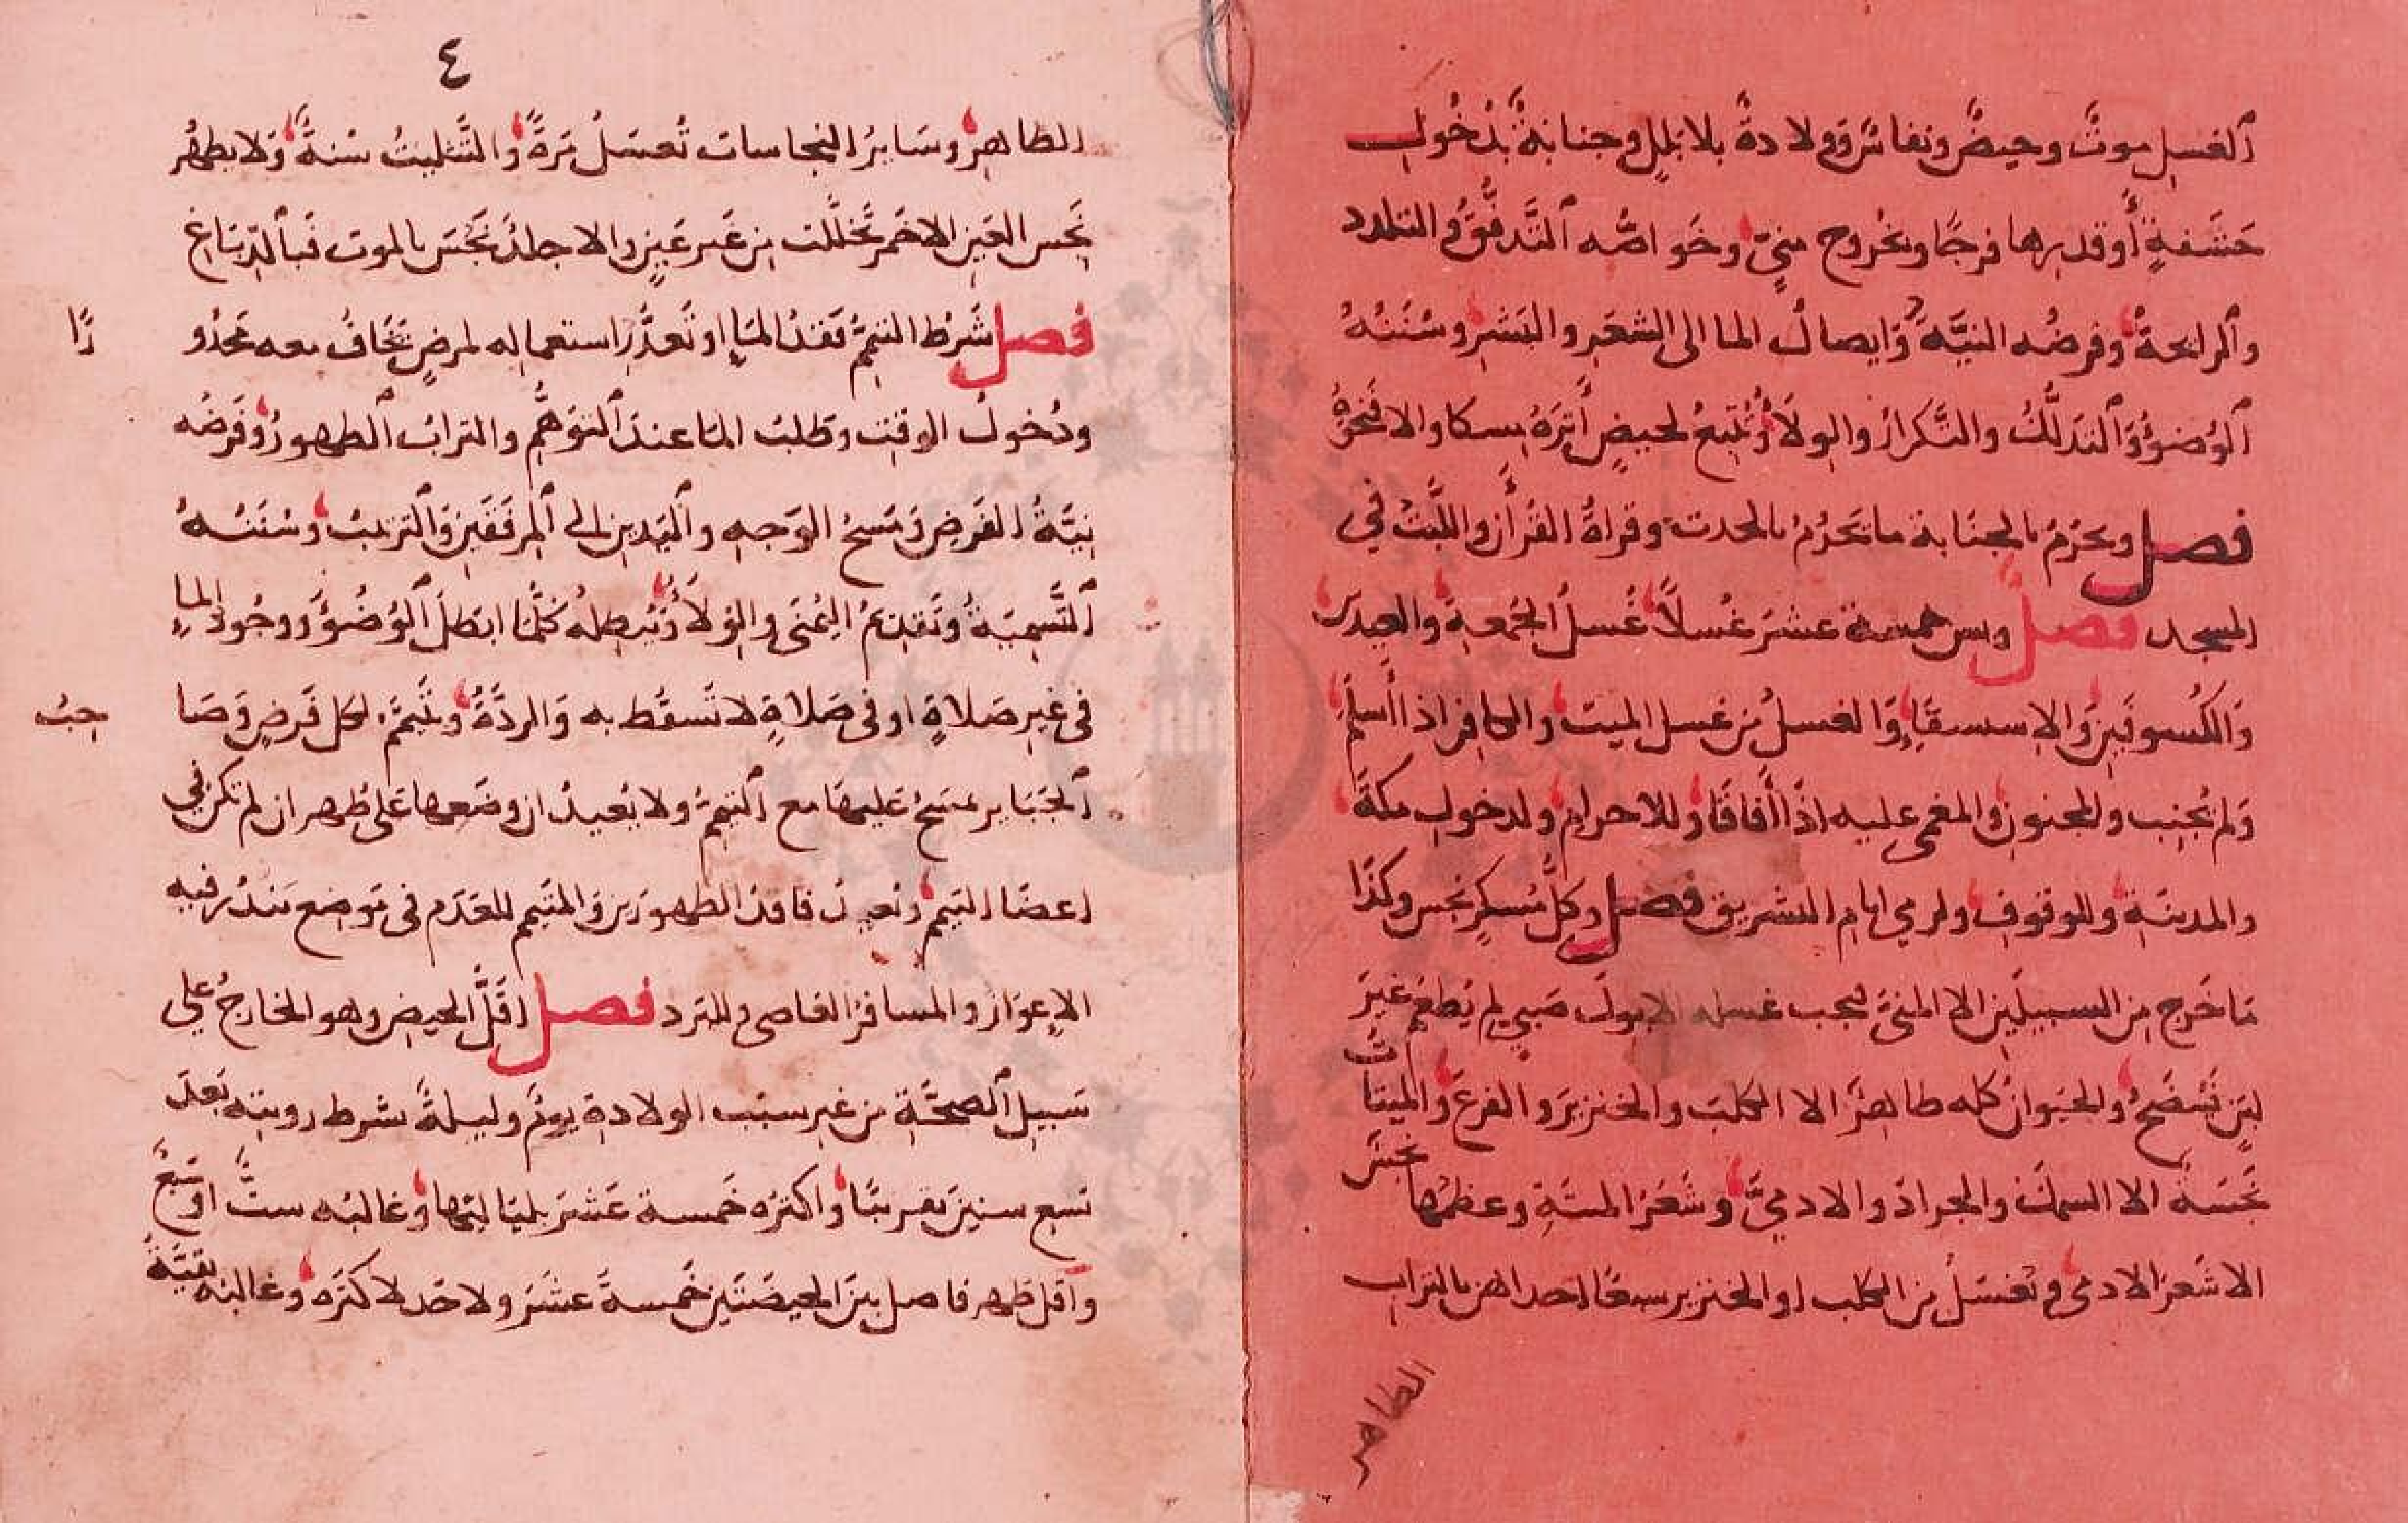 الغسل موتٌ وحيضٌ ونفاسٌ وولادةٌ بلا بللٍ وجنابةٌ بدُخولِ
حَشَفةٍ أوقدرها فرجًا وبخُروج منيٍّ وخَواصُّه التَّدفُّقُ والتلذد
والرايحةُ وفرضُه النيَّةُ وَايصالُ الما الى الشعَر والبَشر وسُنَنُهُ
الوُضوُ وَالتدَلُّكُ والتَّكرارُ والوِلاَ وُتُتبعُ لحيضٍ أثرَهُ مسكا والافنحوُهُ
فصل ويحرُمُ بالجنَابة ما يَحرُمُ بالحدث وقراةُ القُرأن واللَّبثُ في
المسجد فصل ويسن خمسة عشَرَ غُسلاً غُسلُ الجُمعةِ والعيدَين
وَالكُسوفَينِ وَالاِستسقَاءِ وَالغسلُ مِن غسل الميت والكافِر اذا أسلمَ
وَلم يُجنِب والمجنونِ والمغمى عليه اذَا أفاقَا وللاحرامِ ولدخولِ مكةَ
والمدينَةِ وللوقوفِ ولرمي ايام التشريق فصل وكلُّ مُسكِرٍ نجس وكذَا
مَا خَرج مِن السبيلَين الا المنىَّ فيجب غسله الابولَ صَبي لم يَطعَم غيرَ
لبَنٍ نُضَحُ والحيَوانُ كله طاهرٌ الا الكلبَ والخنزيرَ والفرعَ والميتاتُ
نَجَسَةٌ الا السمكَ والجرادَ والادميَّ وشَعَرُ الميتَةِ وعظمُها نجسٌ
الا شَعَرَ الادمى وتُغسَلُ من الكلب او الخنزير سبعًا احداهن بالتراب
الطاهر
٤
الطاهر وسَايرُ النجاسات تُغسَلُ مَرَةً والتَّثليثُ سُنةٌ وَلا يطهُر
نَجِس العَينِ الاخَمر تَخلَّلت مِن غَير عَينٍ والا جلدٌ نَجُسَ بالموت فَبالدّبَاغ
فصل شَرطُ التيمُّ فَقدُ المَاءِ او تَعذُّر استعماله لمرضٍ يَخَافُ معه محذُو رًا
ودُخولُ الوقتِ وطلبُ المَا عندَ التوَهُّمِ والترابُ الطهورُ وفَرضُه
نيَّةُ الفَرض وَمَسحُ الوَجهِ واليَدين الى المِرفَقَينِ وَالترتيبُ وسُنَنُهُ
التَّسمِيَةُ وتَقدِيمُ اليُمنَى والوِلاَ وُيُبطلهُ كلُّمَا ابطَلَ الوُضُوَ ووجُودُ الماءِ
فى غير صَلاةٍ او فى صَلاةٍ لا تَسقُط به وَالردَّةُ ويُتَيمَّمُ لكل فَرضٍ وَصَا حبُ
الجَبَاير يمسَحُ عَليهَا مع التيممُ ولا يعُيدُ ان وضَعها عَلى طُهر ان لم تكن في
اعضَا التيمم ويُعيدُ فاقدُ الطهورَين وَالمتَيمم للعَدَم فى مَوضع يَندُر فيه
الاِعوَاز والمسافرُ العَاصى وللبَرد فصل اقَلُّ الحَيض وهو الخارجُ على
سَبيل الصحَّةِ من غير سبَب الولادةِ يومٌ وليلةٌ بشرط رويته بَعدَ
تسع سنينَ تقريبًا واكثرُه خَمسة عَشَرَ بليَاليَها وغالبُه ستٌ او سَبعٌ
وَاقل طُهر فاصل بينَ الحيضَتَين خَمسةَ عشَرَ ولا حَد لاكثَره وغالبُه بقيَّةُ